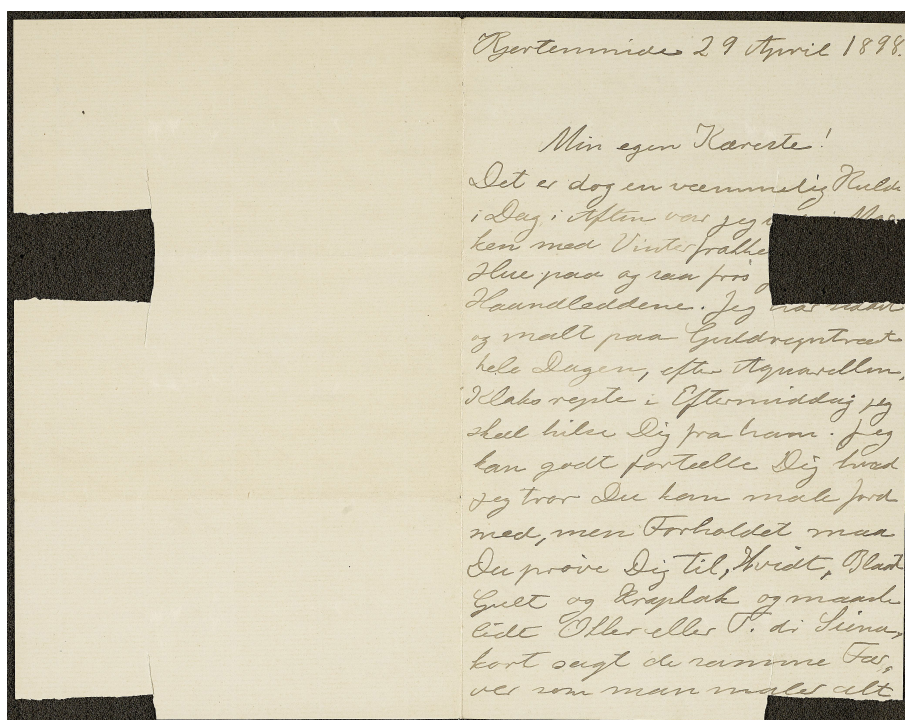 Kjerteminde 29 April 1898.
Min egen Kæreste!
Det er dog en væmmelig Kulde
i Dag, i Aften var jeg i Mar-
ken med Vinterfrakke
Hue paa og saa frøs
Haandleddene. Jeg har
og malt paa Guldregntræet
hele Dagen, efter Aquarellen,
Klaks rejste i Eftermiddag jeg
skal hilse Dig fra ham. Jeg
kan godt fortælle Dig hvad
jeg tror Du kan male Jord
med, men Forholdet maa
Du prøve Dig til, Hvidt, Blaat
Gult og Kraplak og maaske
lidt Okker eller T. di Siena,
kort sagt de samme Far,
ver som man maler alt